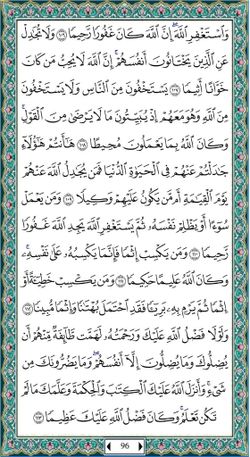 وَٱسْتَغْفِرِ ٱللَّهَ ۖ إِنَّ ٱللَّهَ كَانَ غَفُورًا رَّحِيمًا ١٠٦ وَلَا تُجَٰدِلْ
عَنِ ٱلَّذِينَ يَخْتَانُونَ أَنفُسَهُمْ ۚ إِنَّ ٱللَّهَ لَا يُحِبُّ مَن كَانَ
خَوَّانًا أَثِيمًا ١٠٧ يَسْتَخْفُونَ مِنَ ٱلنَّاسِ وَلَا يَسْتَخْفُونَ
مِنَ ٱللَّهِ وَهُوَ مَعَهُمْ إِذْ يُبَيِّتُونَ مَا لَا يَرْضَىٰ مِنَ ٱلْقَوْلِ ۚ
وَكَانَ ٱللَّهُ بِمَا يَعْمَلُونَ مُحِيطًا ١٠٨ هَٰٓأَنتُمْ هَٰٓؤُلَآءِ
جَٰدَلْتُمْ عَنْهُمْ فِى ٱلْحَيَوٰةِ ٱلدُّنْيَا فَمَن يُجَٰدِلُ ٱللَّهَ عَنْهُمْ
يَوْمَ ٱلْقِيَٰمَةِ أَم مَّن يَكُونُ عَلَيْهِمْ وَكِيلًا ١٠٩ وَمَن يَعْمَلْ
سُوٓءًا أَوْ يَظْلِمْ نَفْسَهُۥ ثُمَّ يَسْتَغْفِرِ ٱللَّهَ يَجِدِ ٱللَّهَ غَفُورًا
رَّحِيمًا ١١٠ وَمَن يَكْسِبْ إِثْمًا فَإِنَّمَا يَكْسِبُهُۥ عَلَىٰ نَفْسِهِۦ ۚ
وَكَانَ ٱللَّهُ عَلِيمًا حَكِيمًا ١١١ وَمَن يَكْسِبْ خَطِيٓـَٔةً أَوْ
إِثْمًا ثُمَّ يَرْمِ بِهِۦ بَرِيٓـًٔا فَقَدِ ٱحْتَمَلَ بُهْتَٰنًا وَإِثْمًا مُّبِينًا ١١٢
وَلَوْلَا فَضْلُ ٱللَّهِ عَلَيْكَ وَرَحْمَتُهُۥ لَهَمَّت طَّآئِفَةٌ مِّنْهُمْ أَن
يُضِلُّوكَ وَمَا يُضِلُّونَ إِلَّآ أَنفُسَهُمْ ۖ وَمَا يَضُرُّونَكَ مِن
شَىْءٍ ۚ وَأَنزَلَ ٱللَّهُ عَلَيْكَ ٱلْكِتَٰبَ وَٱلْحِكْمَةَ وَعَلَّمَكَ مَا لَمْ
تَكُن تَعْلَمُ ۚ وَكَانَ فَضْلُ ٱللَّهِ عَلَيْكَ عَظِيمًا ١١٣
96